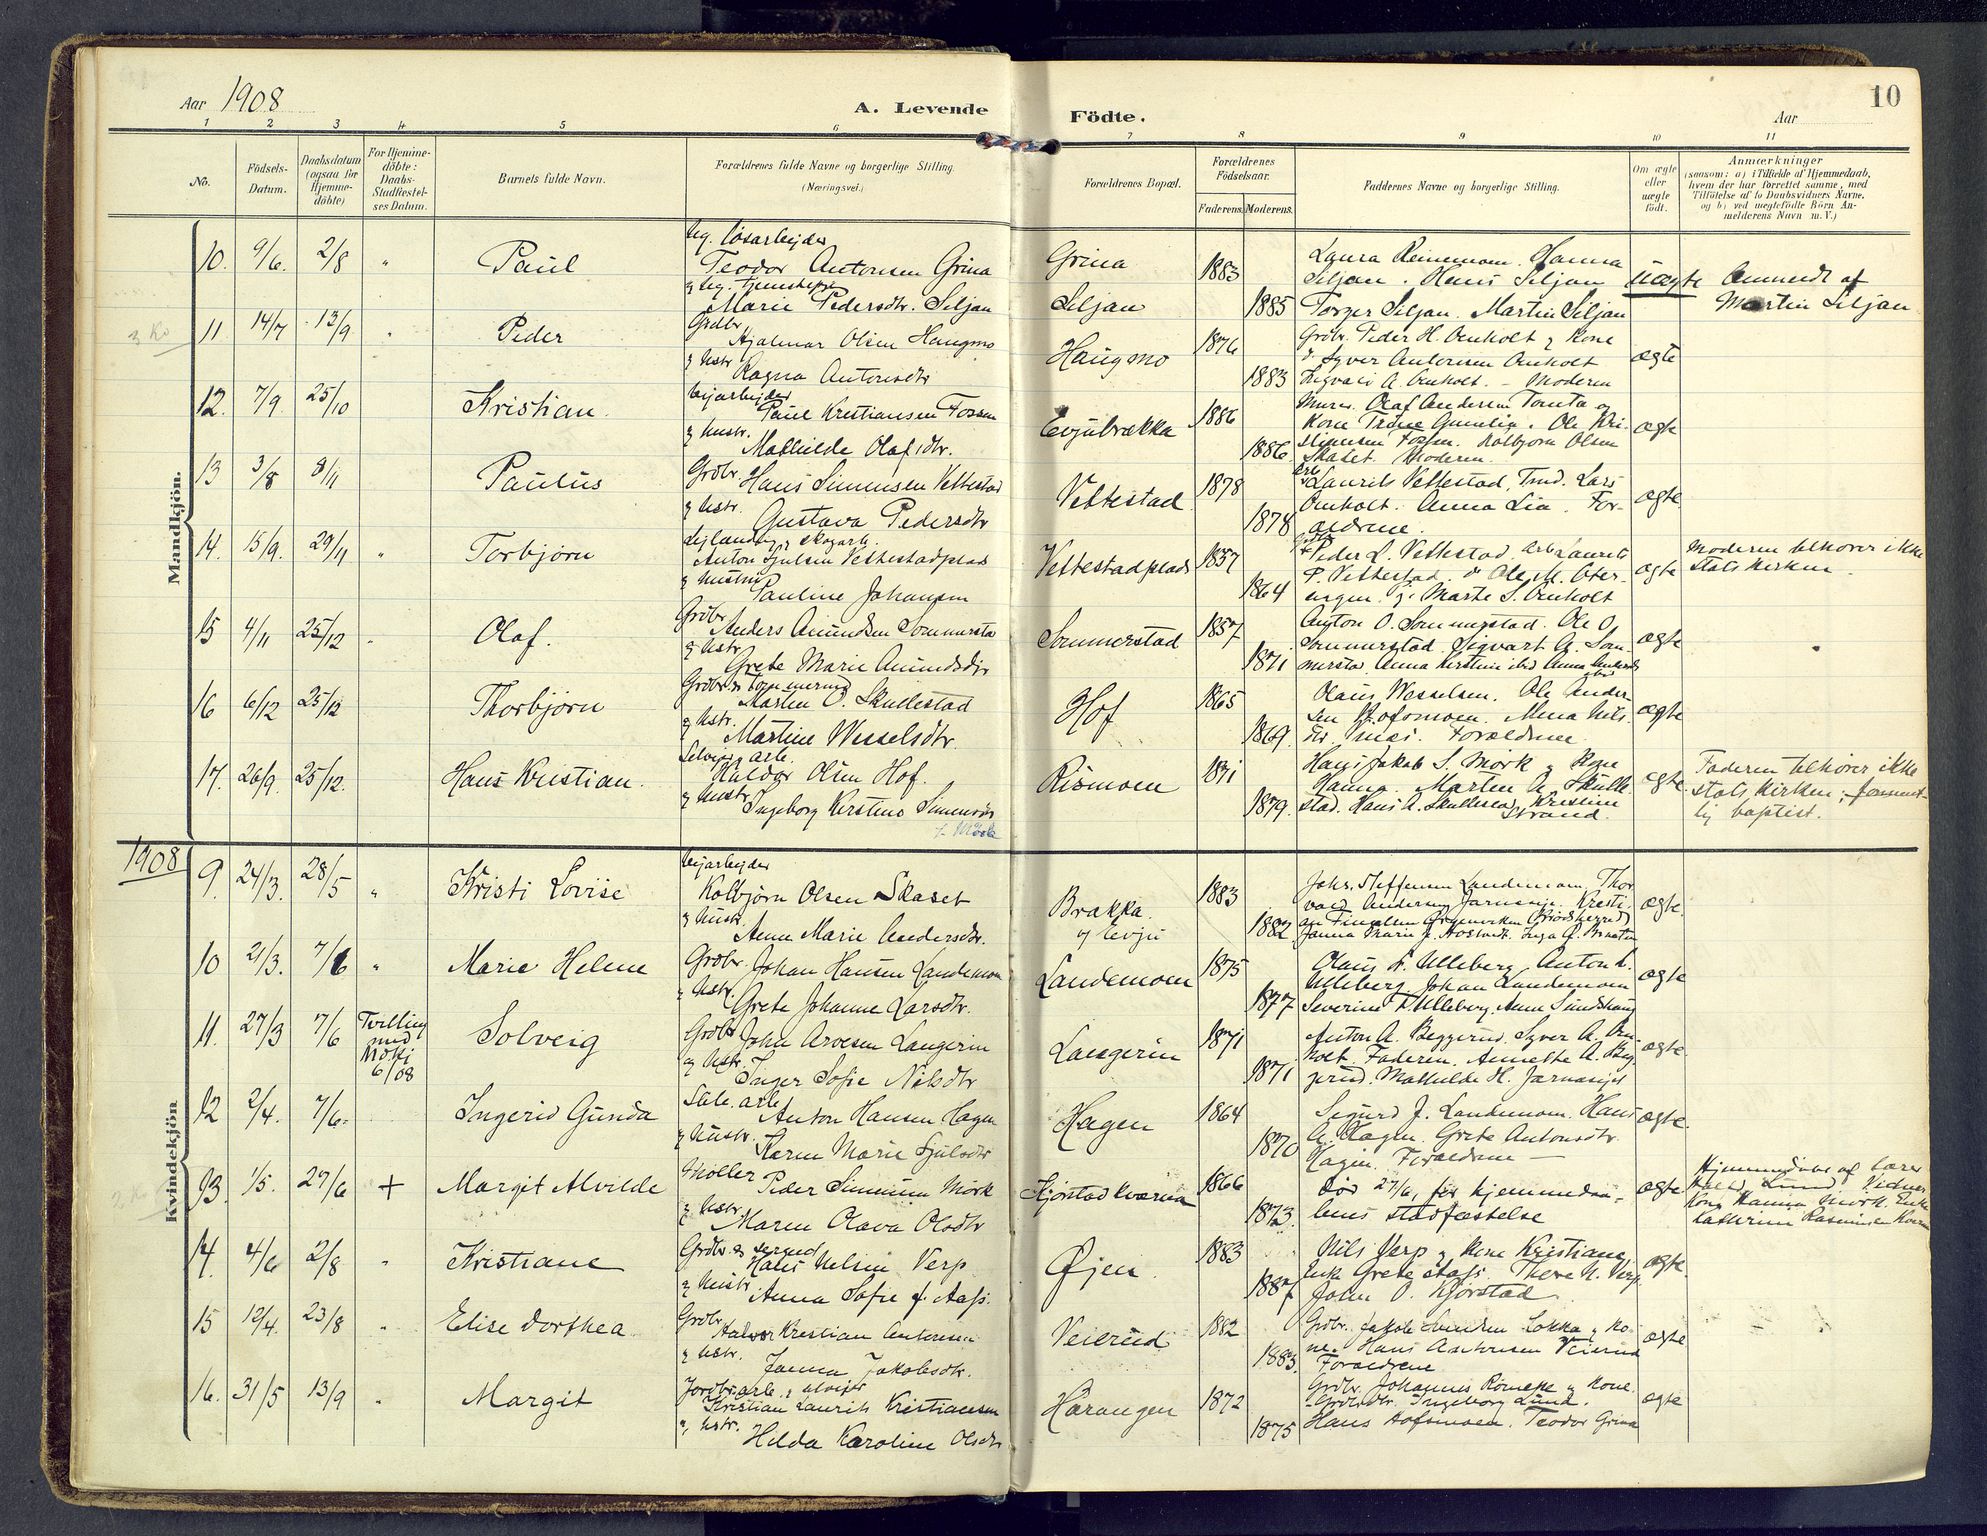 Aar 1908
A. Levende
Födte.
Aar
10
1 2 3 4 5 6 7 8 9 10 11
No.
Födsels-
Datum.
Daabsdatum
(ogsaa for
Hjemme-
döbte)
For Hjemme-
döbte:
Daabs-
Stadfæstel-
ses Datum.
Barnets fulde Navn.
Forældrenes fulde Navne og borgerlige Stilling.
(Næringsvei.)
Forældrenes Bopæl.
Forældrenes
Födselsaar.
Faderens. Moderens.
Faddernes Navne og borgerlige Stilling.
Om ægte
eller
uægte
födt.
Anmærkninger
(saasom: a) i Tilfælde af Hjemmedaab,
hvem der har forrettet samme, med
Tilföielse af to Daabsvidners Navne,
og b) ved uægtefödte Börn An-
melderens Navn m. V.)
Mandkjön.
10. 9/6. 2/8 " Paul
Ug. løsarbejder
Teodor Antonsen Grina
og ug. tjenestepige
Marie Pedersdtr. Siljan
Grina
Siljan
1883
1885
Laura Hanna
Siljan. Hans Siljan
Torger Siljan. Martin Siljan
uægte
Anmeldt af
Martin Siljan
11. 14/7 13/9 " Peder
Grdbr.
Hjalmar Olsen Haugmo
og hstr.
Ragna Antonsdtr
Haugmo
1876
1883
Grdbr. Peder H. Omholt og Kone
Syver Antonsen Omholt
A. Omholt. - Moderen
ægte
12. 7/9. 25/10 Kristian.
Vejarbejder
Paul Kristiansen Fossen
og hustr.
Mathilde Olafsdtr.
Evjubrækka
1886
1886
Murer Olaf Andersen Tomta og
Kone Ole Kri-
stiansen Fossen. Kolbjørn Olsen
Skaset. Moderen.
ægte
13 3/8 8/11 Paulus
Grdbr. Hans Simensen Vettestad
og hstr.
Gustava Pedersdtr
Vettestad
1878
1878
Laurits Vettestad, Lars
Omholt. Anna Lia. For-
ældrene.
ægte
14. 15/9. 29/11 " Torbjørn
og skogarb.
Anton Sjulsen Vettestadplads
og hustru
Pauline Johansen
Vettestadplads
1857
1864
Peder L. Vettestad. arb. Laurits
P. Vettestad. Ole M.
og Marte S. Omholt
ægte
Moderen tilhører ikke
statskirken.
15 4/11 25/12 " Olaf.
Grdbr.
Anders Amundsen Sommerstad
og hstr.
Grete Marie Amundsdtr
Sommerstad
1857
1871
Anton O. Sommerstad. Ole O.
Sommerstad. Sigvart A. Som-
merstad Anna Kirstine ibid Anna
ægte
16 6/12 25/12 Thorbjørn
Grdbr. og tømmermd
Martin O. Skullestad
og hstr.
Martine Wesselsdtr.
Hof
1865
1869.
Olaus Wesselsen. Ole Ander-
sen Hofsmoen. Mina Nils-
dtr Forældrene
ægte
17. 26/9. 25/12. Hans Kristian.
Selvejer, arb.
Haldor Olsen Hof.
og hustr.
Ingeborg Kirstine Simensdtr
f. Mörk
Rismoen
1871
1879.
Hans Jakob S. Mörk og Kone
Hanna. Marten A. Skulle-
stad. Hans A. Skullestad Kristine
Strand.
ægte
Faderen tilhører ikke
statskirken; forment-
lig baptist.
1908
Kvindekjön
9. 24/3. 28/5 " Kristi Lovise
Vejarbejder
Kolbjörn Olsen Skaset
og hustr.
Anne Marie Andersdtr.
Brækka.
og Evju
1883
1882
Johs. Steffensen Landemoen, Thor-
vald Andersen Kristi-
an
ægte.
10 21/3. 7/6 " Marie Helene
Grdbr. Johan Hansen Landemoen
og hstr.
Grete Johanne Larsdtr.
Landemoen
1875
1877
Olaus L. Ulleberg. Anton L.
Ulleberg Johan Landemoen
Severine L. Ulleberg. Anne
ægte
11. 27/3 7/6 Tvilling
med
No 8 i
6/08
Solveig
Grdbr John Arvesen Langerin
og hstr.
Inger Sofie Nilsdtr
Langerin
1871
1871
Anton A. Beggerud. Syver A. Om-
holt. Faderen. Annette A. Beg-
gerud. Mathilde H.
ægte
12 2/4. 7/6. Ingerid Gunda
arb.
Anton Hansen Hagen
og hustr.
Karen Marie Sjulsdtr
Hagen
1864
1870
Sigurd J. Landemoen. Hans
A. Hagen. Grete Antonsdtr.
Hagen. Forældrene
ægte.
13. 1/5. 27/6 + Margit Alvilde
Møller
Peder Simensen Mörk
og hstr.
Maren Olava Olsdtr
Kjørstad kværn
1866
1873.
Död 27/6, før hjemmedaa-
bens stadfæstelse
ægte
Hjemmedöbt af lærer
Lund. Vidner
Kone Hanna Mörk. Enke
Rasmussen
14. 4/6 2/8 " Kristiane
Grdbr. og
Hans Nilsen Verp
og hustr.
Anna Sofie f. Aass.
Øjen.
1883
1887
Nils Verp og Kone Kristiane
Enke Grete Aass. Thore N. Verp
John O. Kjørstad
ægte.
15 12/4. 23/8 " Elise Dorthea.
Grdbr.
Halvor Kristian Antonsen
og hstr.
Janna Jakobsdtr.
Veierud
1882
1883
Grdbr. Jakob Svendsen Lokka og Ko-
ne. Hans Antonsen Veierud
Forældrene
ægte
16. 31/5 13/9 " Margit
Jordbr.arb. og
Kristian Laurits Kristiansen
og hstr.
Hilda Karoline Olsdtr
Haraugen
1872
1875
Grdbr. Johannes og Kone.
Ingeborg Lund.
Hans Hofsmoen. Teodor Grina
ægte